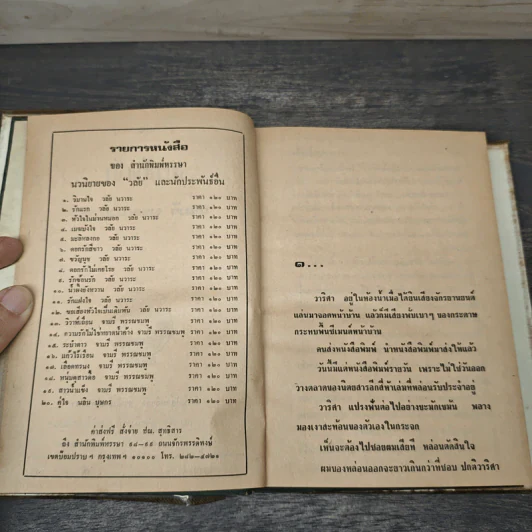 รายการหนังสือ
ของ สำนักพิมพ์หรรษา
นวนิยายของ "วลัย" และนักประพันธ์อื่น
๑. วิมานใจ วลัย นวาระ ราคา ๑๒๐ บาท
๒. รักแรก วลัย นวาระ ราคา ๑๒๐ บาท
๓. หัวใจในม่านหมอก วลัย นวาระ ราคา ๑๒๐ บาท
๔. เมฆบังใจ วลัย นวาระ ราคา ๑๒๐ บาท
๕. มะลิกลางกอ วลัย นวาระ ราคา ๑๒๐ บาท
๖. ดอกรักสีขาว วลัย นวาระ ราคา ๑๒๐ บาท
๗. ขวัญนุช วลัย นวาระ ราคา ๑๒๐ บาท
๘. ดอกรักไม่เคยโรย วลัย นวาระ ราคา ๑๒๐ บาท
๙. รักซ้อนรัก วลัย นวาระ ราคา ๑๒๐ บาท
๑๐. น้ำผึ้งยังหวาน วลัย นวาระ ราคา ๑๒๐ บาท
๑๑. รักแฝงใจ วลัย นวาระ ราคา ๑๒๐ บาท
๑๒. ขอเสียงหัวใจเป็นเดิมพัน วลัย นวาระ ราคา ๑๒๐ บาท
๑๓. วิวาห์เถื่อน จามรี พรรณชมพู ราคา ๑๒๐ บาท
๑๔. ความรักไม่ใช่หยาดน้ำค้าง จามรี พรรณชมพู ราคา ๑๒๐ บาท
๑๕. ระบำดาว จามรี พรรณชมพู ราคา ๑๒๐ บาท
๑๖. แก้วไร้เรือน จามรี พรรณชมพู ราคา ๑๒๐ บาท
๑๗. เลือดทรนง จามรี พรรณชมพู ราคา ๑๒๐ บาท
๑๘. หนุ่มดาวดึก จามรี พรรณชมพู ราคา ๑๒๐ บาท
๑๙. สาวน้ำแข็ง จามรี พรรณชมพู ราคา ๑๒๐ บาท
๒๐. คู่ใจ นลิน บุษกร ราคา ๑๒๐ บาท
ค่าส่งฟรี สั่งจ่าย ปณ. สุทธิสาร
ถึง สำนักพิมพ์หรรษา ๔๘-๕๕ ถนนจักรพรรดิพงษ์
เขตป้อมปราบฯ กรุงเทพฯ ๑๐๑๐๐ โทร. ๒๘๒-๔๗๒๑
๑...
วาริศา อยู่ในห้องน้ำเมื่อได้ยินเสียงจักรยานยนต์
แล่นมาจอดหน้าบ้าน แล้วก็มีเสียงพั่บเบาๆ ของกระดาษ
กระทบพื้นซีเมนต์หน้าบ้าน
คนส่งหนังสือพิมพ์ นำหนังสือพิมพ์มาส่งให้แล้ว
วันนี้มีแต่หนังสือพิมพ์รายวัน เพราะไม่ใช่วันออก
วางตลาดของนิตยสารอีกสี่ห้าเล่มที่หล่อนรับประจำอยู่
วาริศา แปรงฟันต่อไปอย่างขะมักเขม้น พลาง
มองเงาสะท้อนของตัวเองในกระจก
เห็นจะต้องไปซอยผมเสียที หล่อนตัดสินใจ
ผมของหล่อนออกจะยาวเกินกว่าที่ชอบ ปกติวาริศา